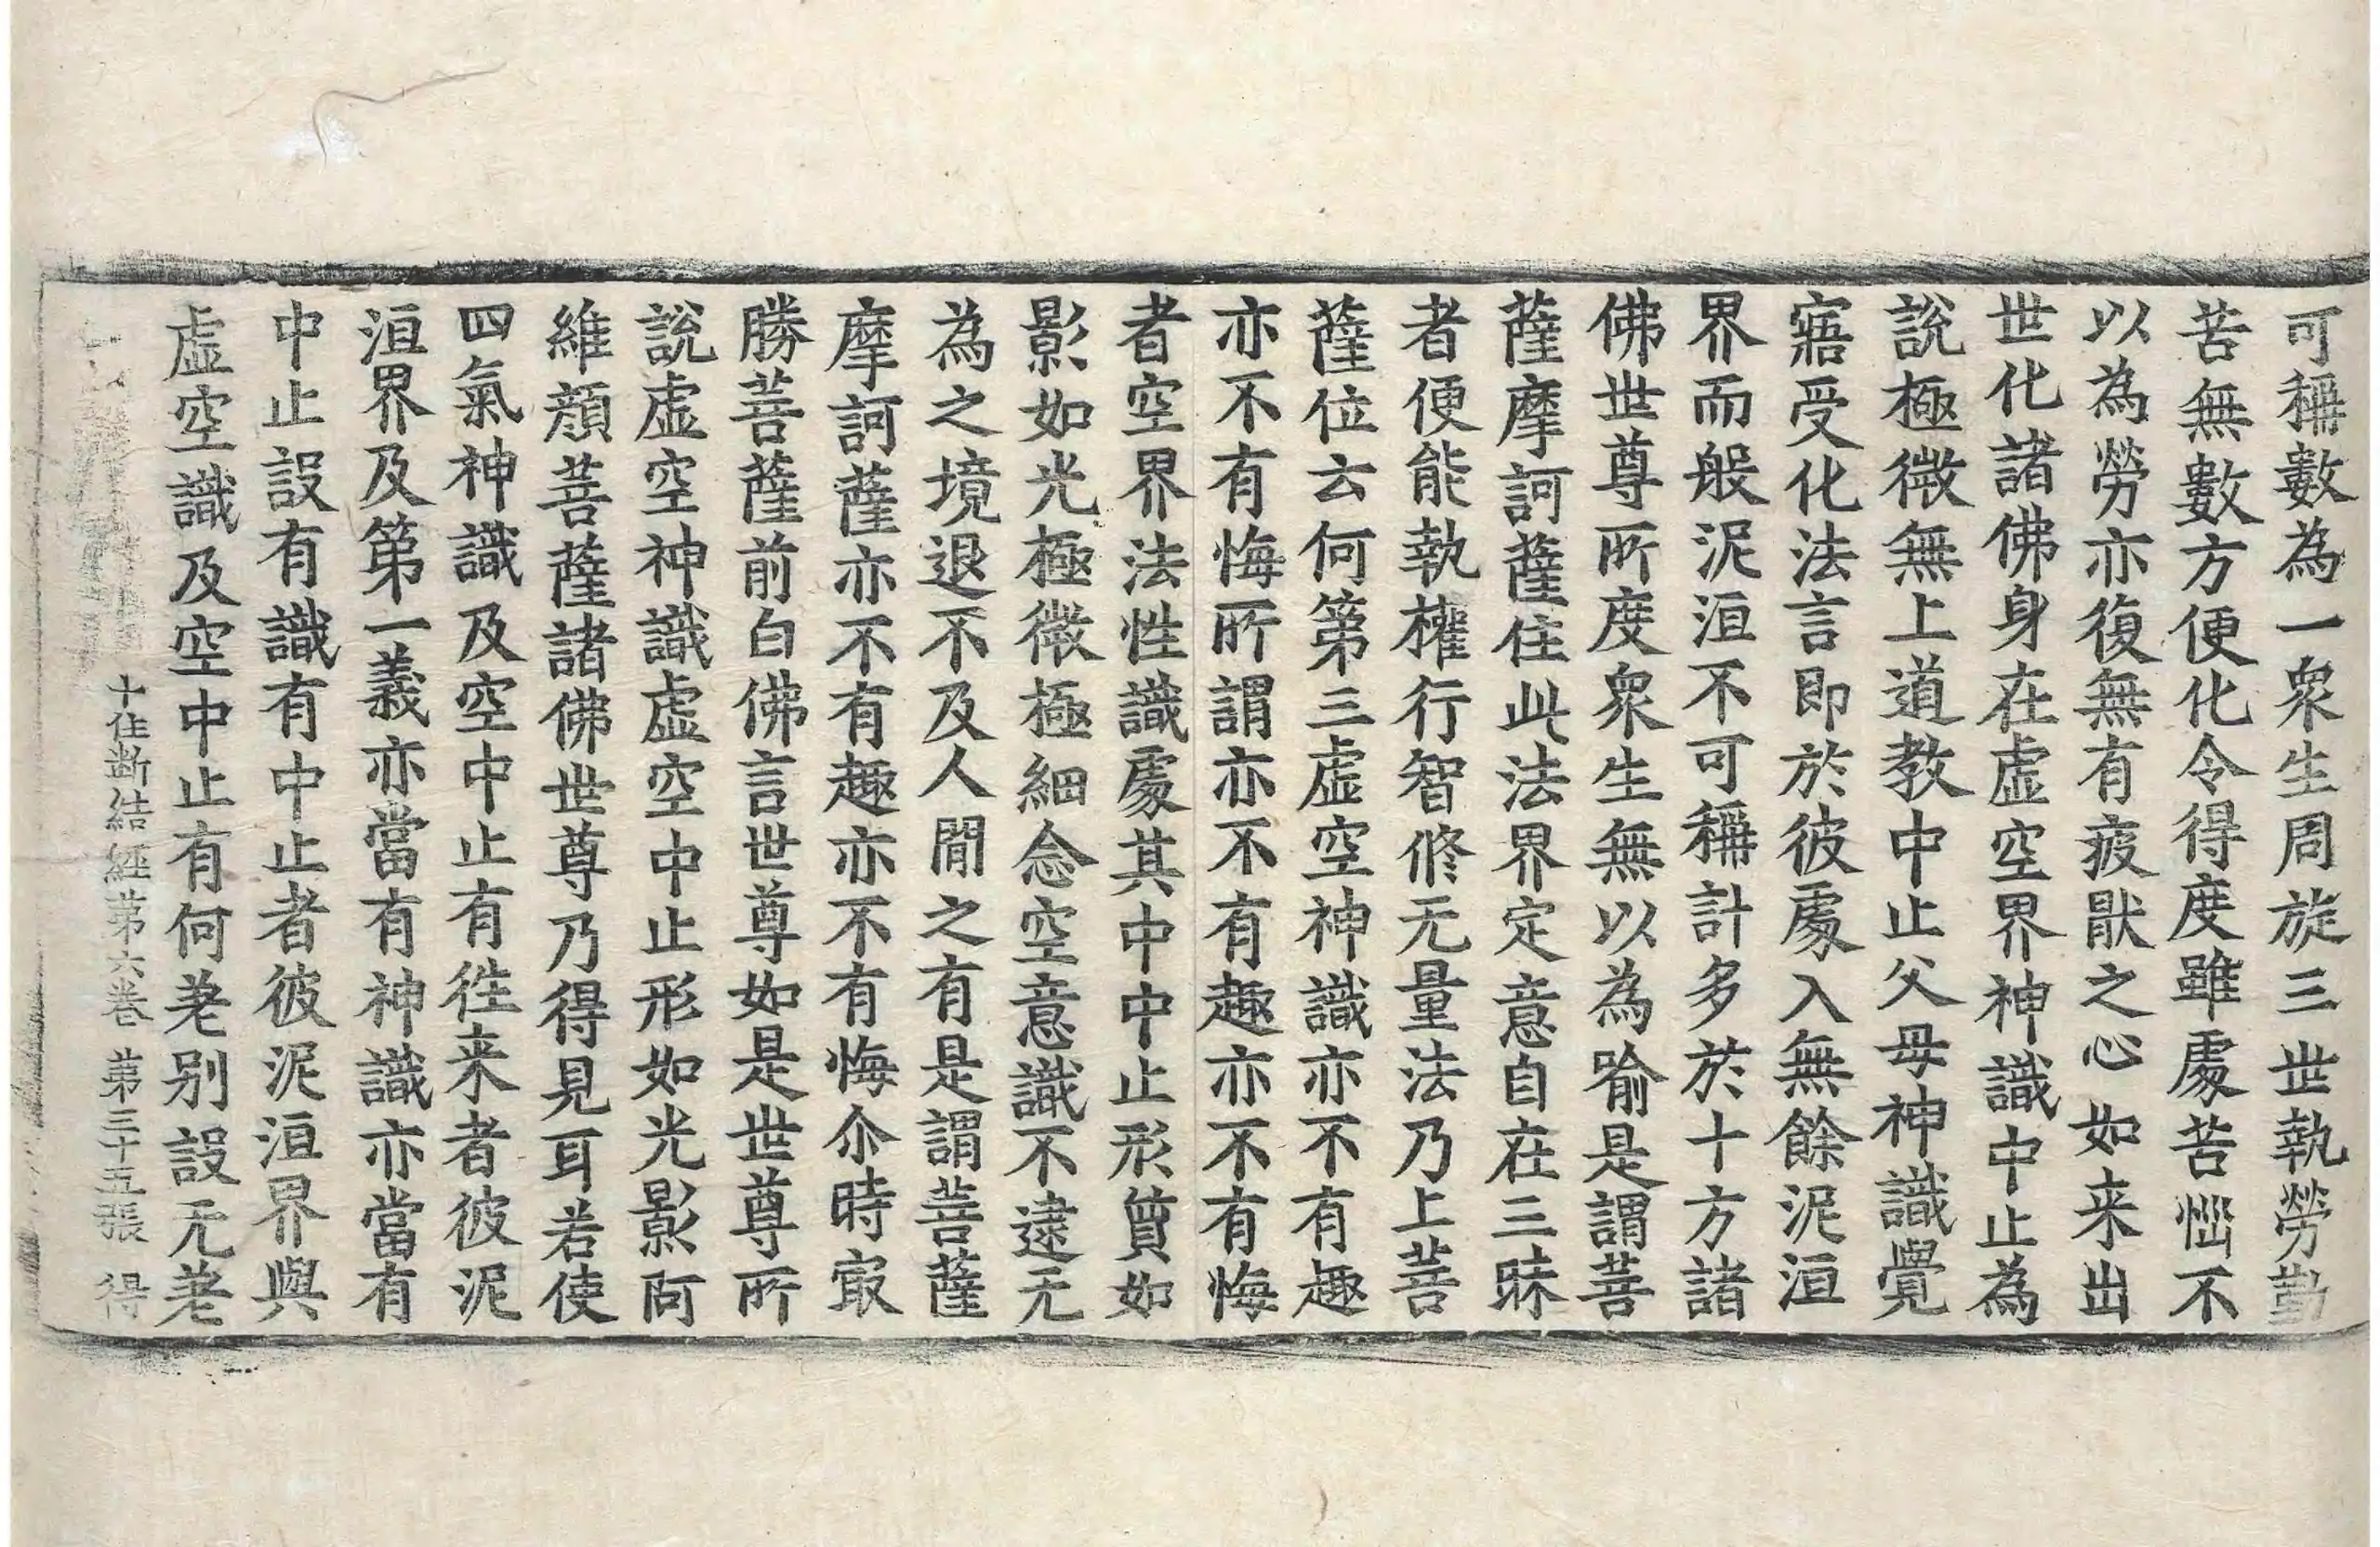 可稱數為一衆生周旋三世執勞勤
苦無數方便化令得度雖處苦惱不
以為勞亦復無有疲猒之心如来出
世化諸佛身在虛空界神識中止為
說極微無上道教中止父母神識覺
寤受化法言即於彼處入無餘泥洹
界而般泥洹不可稱計多於十方諸
佛世尊所度衆生無以為喻是謂菩
薩摩訶薩住此法界定意自在三昧
者便能執權行智修无量法乃上菩
薩位云何第三虛空神識亦不有趣
亦不有悔所謂亦不有趣亦不有悔
者空界法性識處其中中止形質如
影如光極微極細念空意識不逮无
為之境退不及人間之有是謂菩薩
摩訶薩亦不有趣亦不有悔尒時㝡
勝菩薩前白佛言世尊如是世尊所
說虛空神識虛空中止形如光影阿
維顔菩薩諸佛世尊乃得見耳若使
四氣神識及空中止有往来者彼泥
洹界及第一義亦當有神識亦當有
中止設有識有中止者彼泥洹界與
虛空識及空中止有何差别設无差
十住断結經第六卷 第三十五張 得